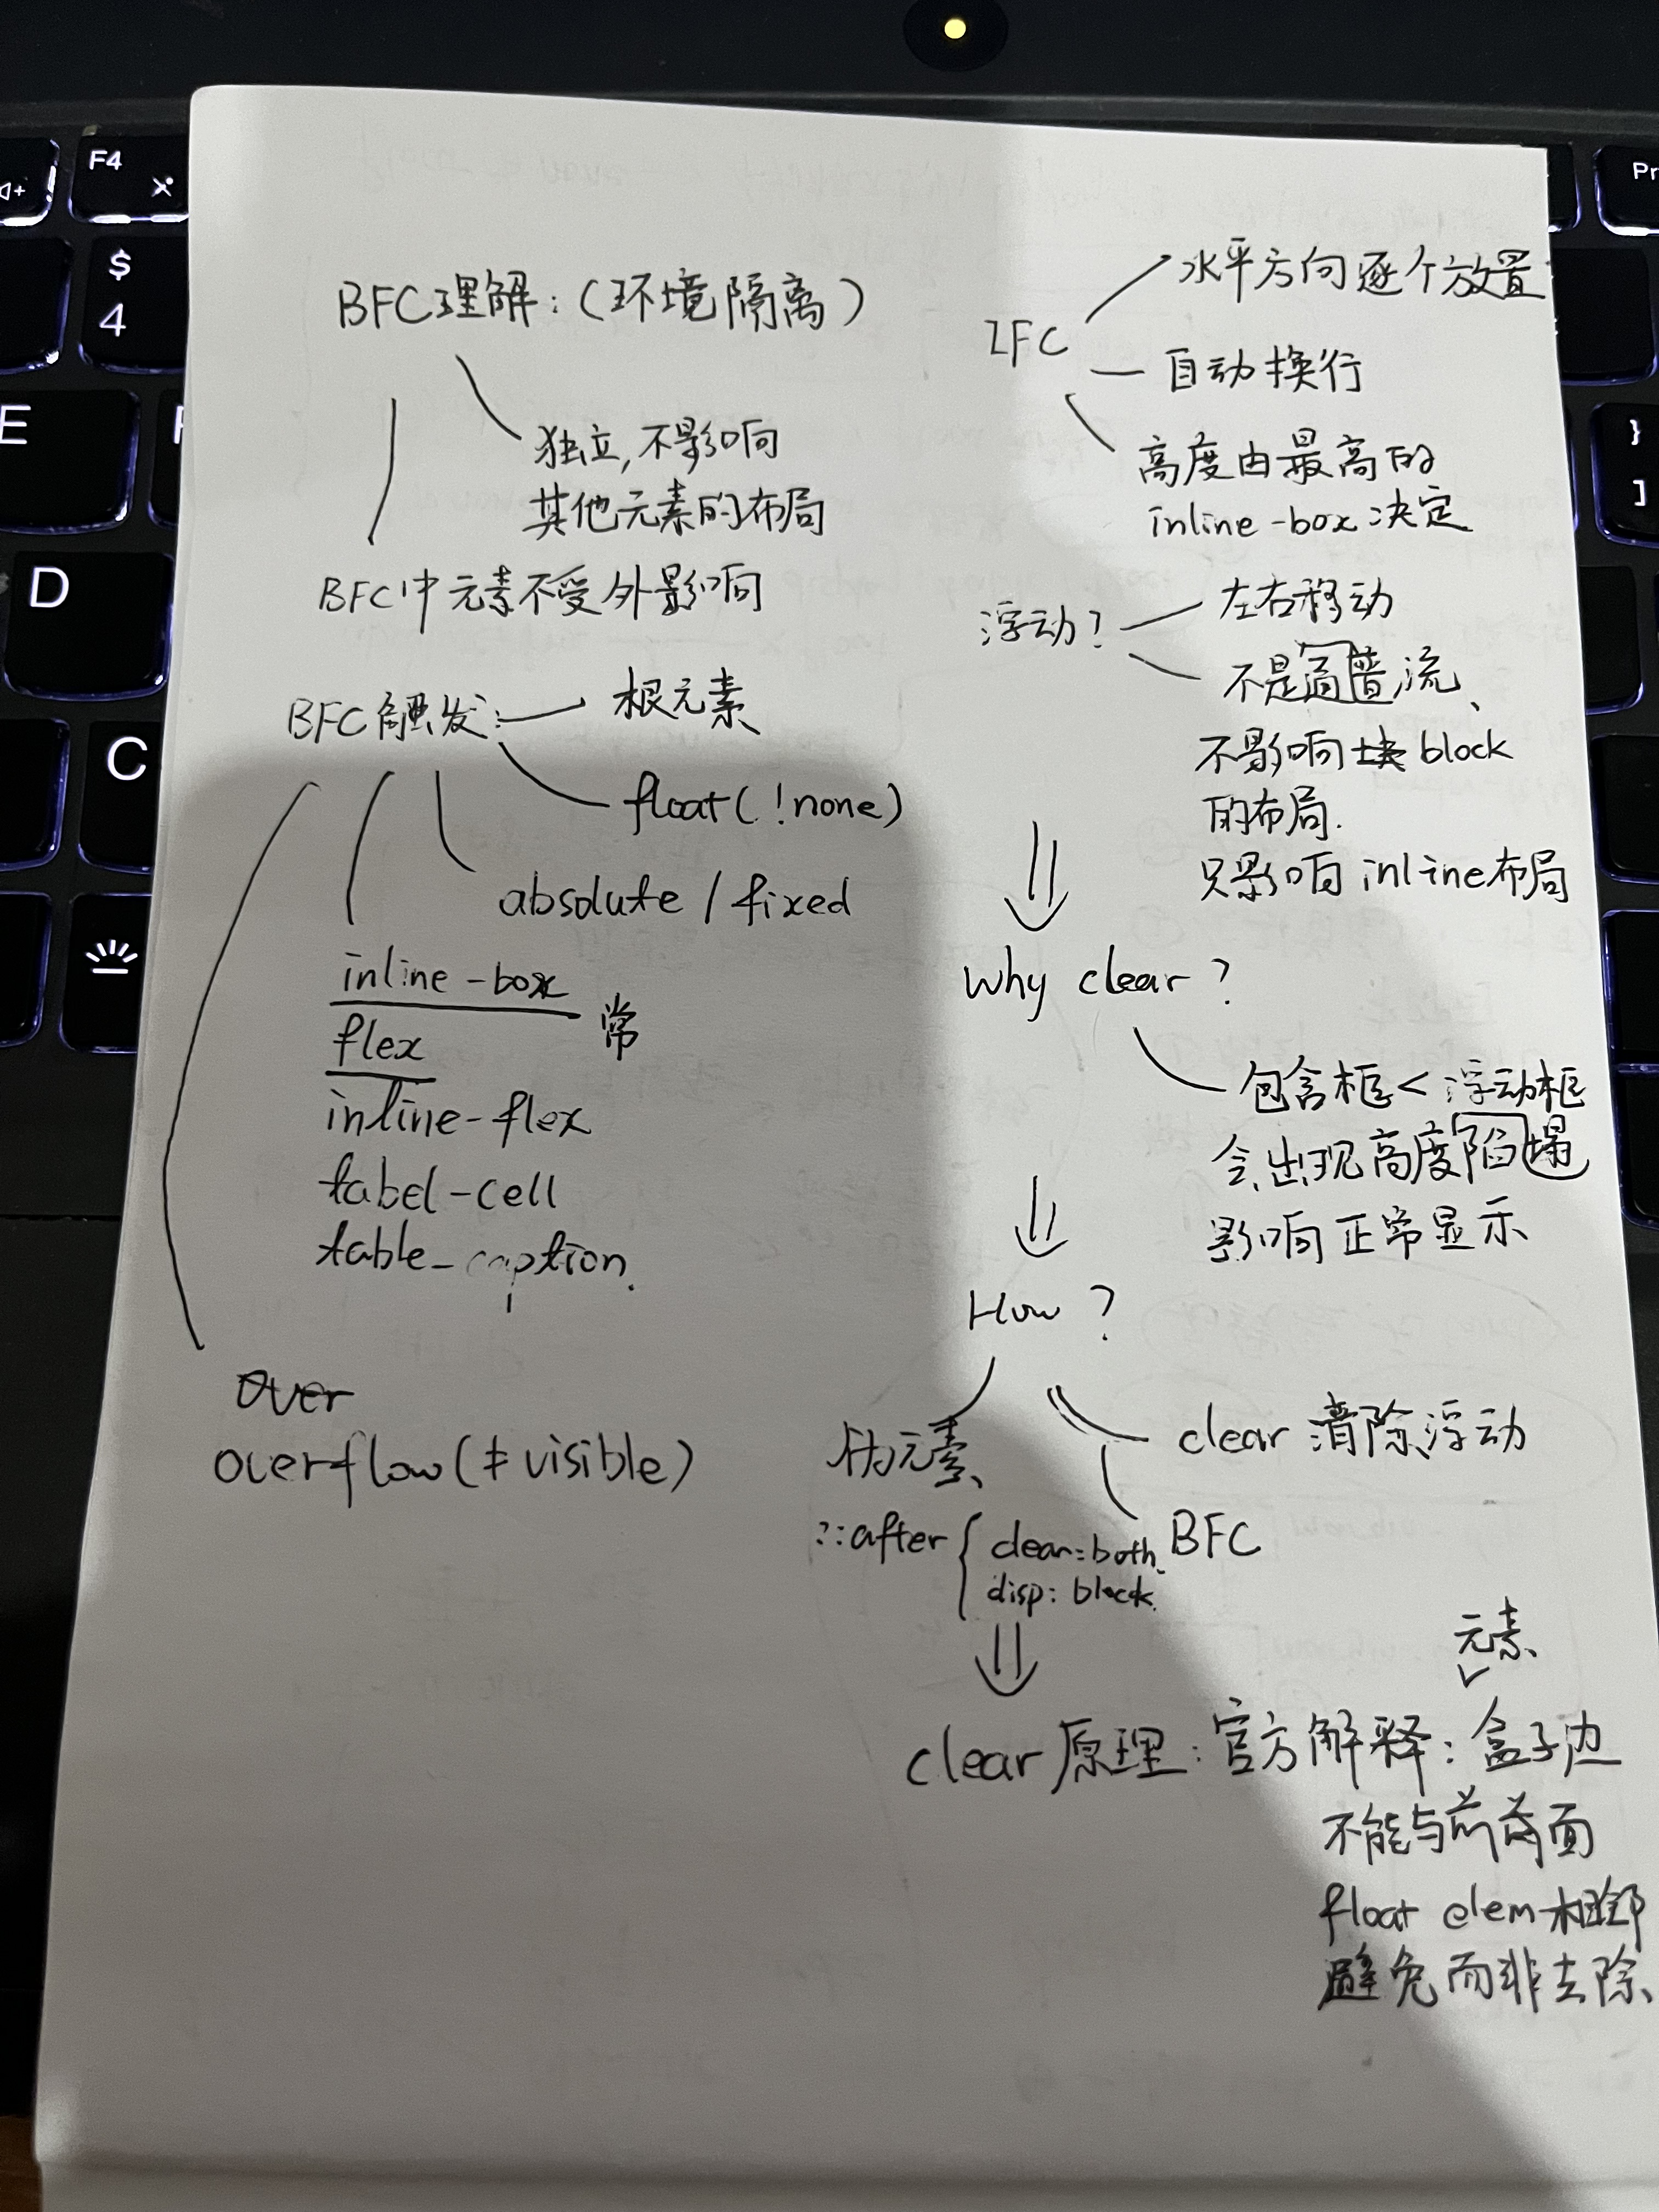 BFC理解：（环境隔离）
独立，不影响
其他元素的布局
BFC中元素不受外影响
BFC触发：
根元素
float（!none）
absolute / fixed
inline-box
flex
常
inline-flex
tabel-cell
table-caption.
over
overflow（≠visible）
IFC
水平方向逐个放置
自动换行
高度由最高的
inline-box决定
浮动？
左右移动
不是普流、
不影响块block
的布局.
只影响inline布局
Why clear？
包含框<浮动框
会出现高度陷塌
影响正常显示
How？
clear 清除浮动
BFC
伪元素、
::after { clear:both.
disp: block.
元素
clear原理：官方解释：盒子边
不能与前面
float elem相邻
避免而非去除、
F4
$
4
E
D
C
Pr
}
]